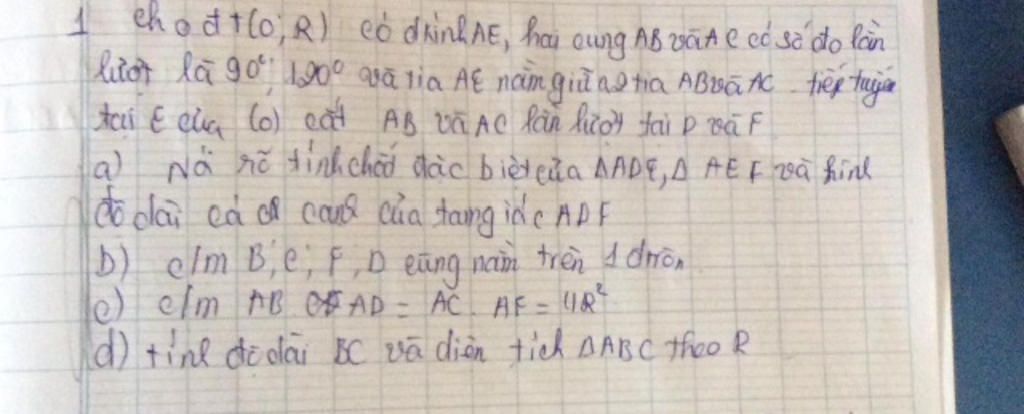 1 cho đt(O; R) có đkính AE, hai cung AB và AC có số đo lần
lượt là 90°; 120° và tia AE nằm giữa 2 tia AB và AC. tiếp tuyến
tại E của (O) cắt AB và AC lần lượt tại D và F
a) Nói rõ tính chất đặc biệt của ΔADE, Δ AEF và tính
độ dài các cạnh của tam giác ADF
b) c/m B, C, F, D cùng nằm trên 1 đtròn
c) c/m AB . AD = AC . AF = 4R²
d) tính độ dài BC và diện tích ΔABC theo R